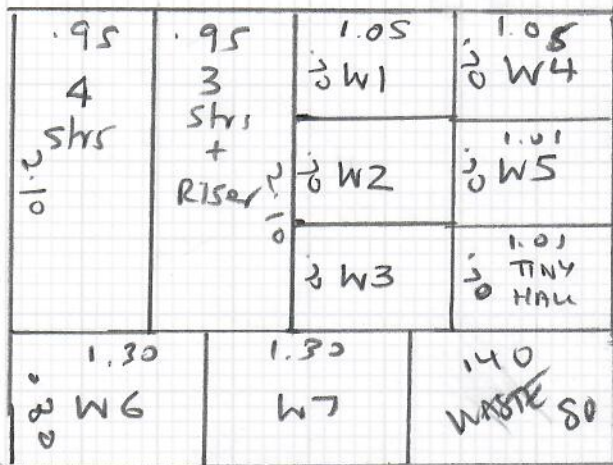 .95
4
Strs
2.10
.95
3
Strs
+
Riser
2.10
1.05
.70 W1
.70 W2
.70 W3
1.05
.70 W4
1.01
.70 W5
1.01
.70 TINY
HALL
1.30
.80 W6
1.30
W7
.40
WASTE 80